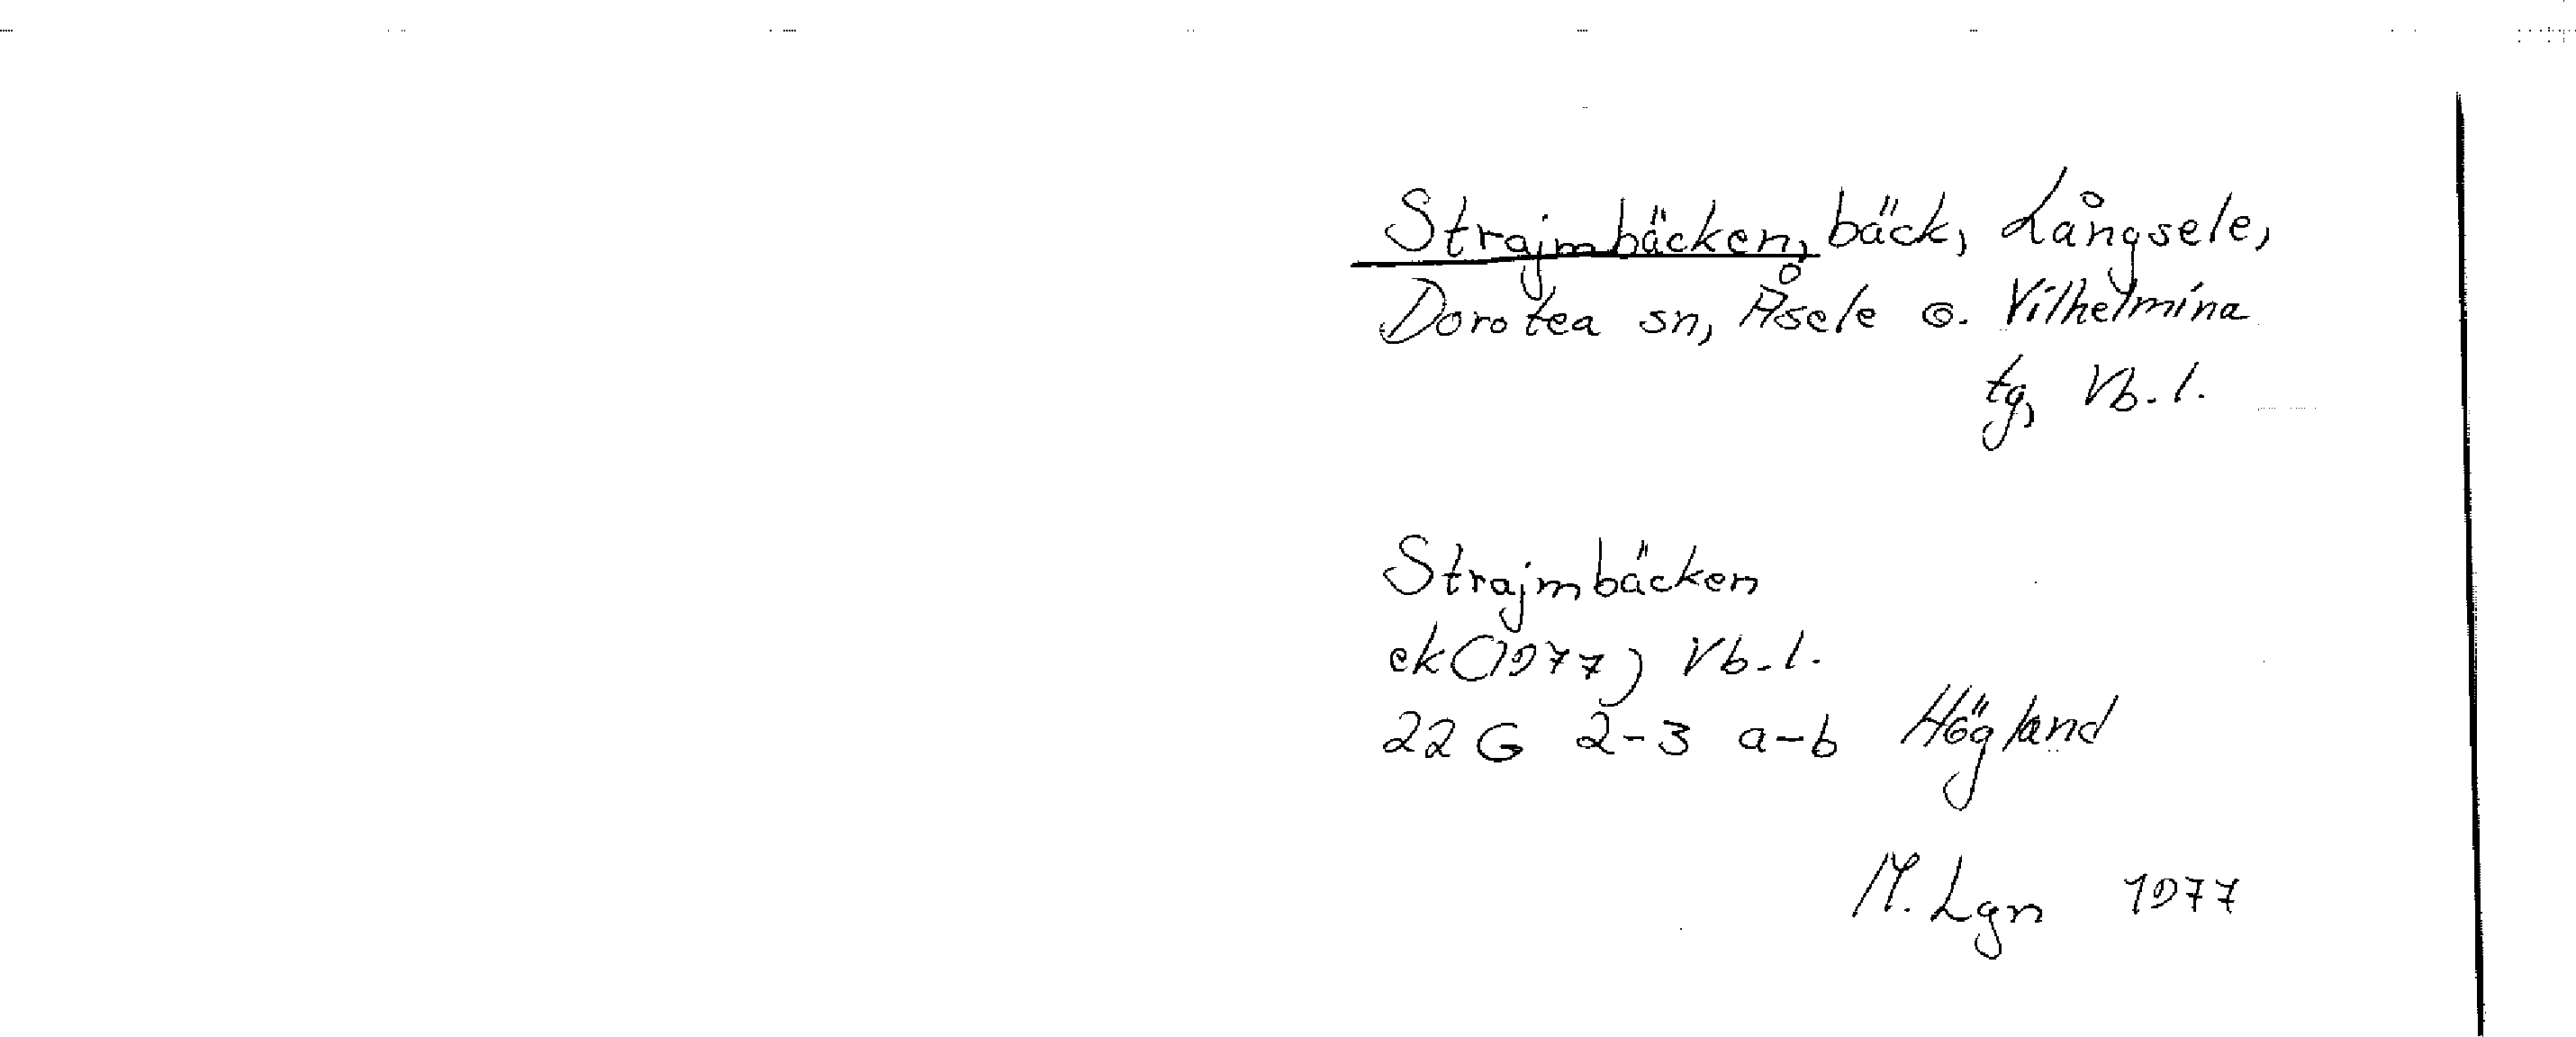 Strajmbäcken, bäck, Långsele,
Dorotea sn, Åsele o. Vilhelmina
tg, Vb. l.
Strajmbäcken
ek (1977) Vb. l.
22 G 2-3 a-b Högland
M. Lgn 1977